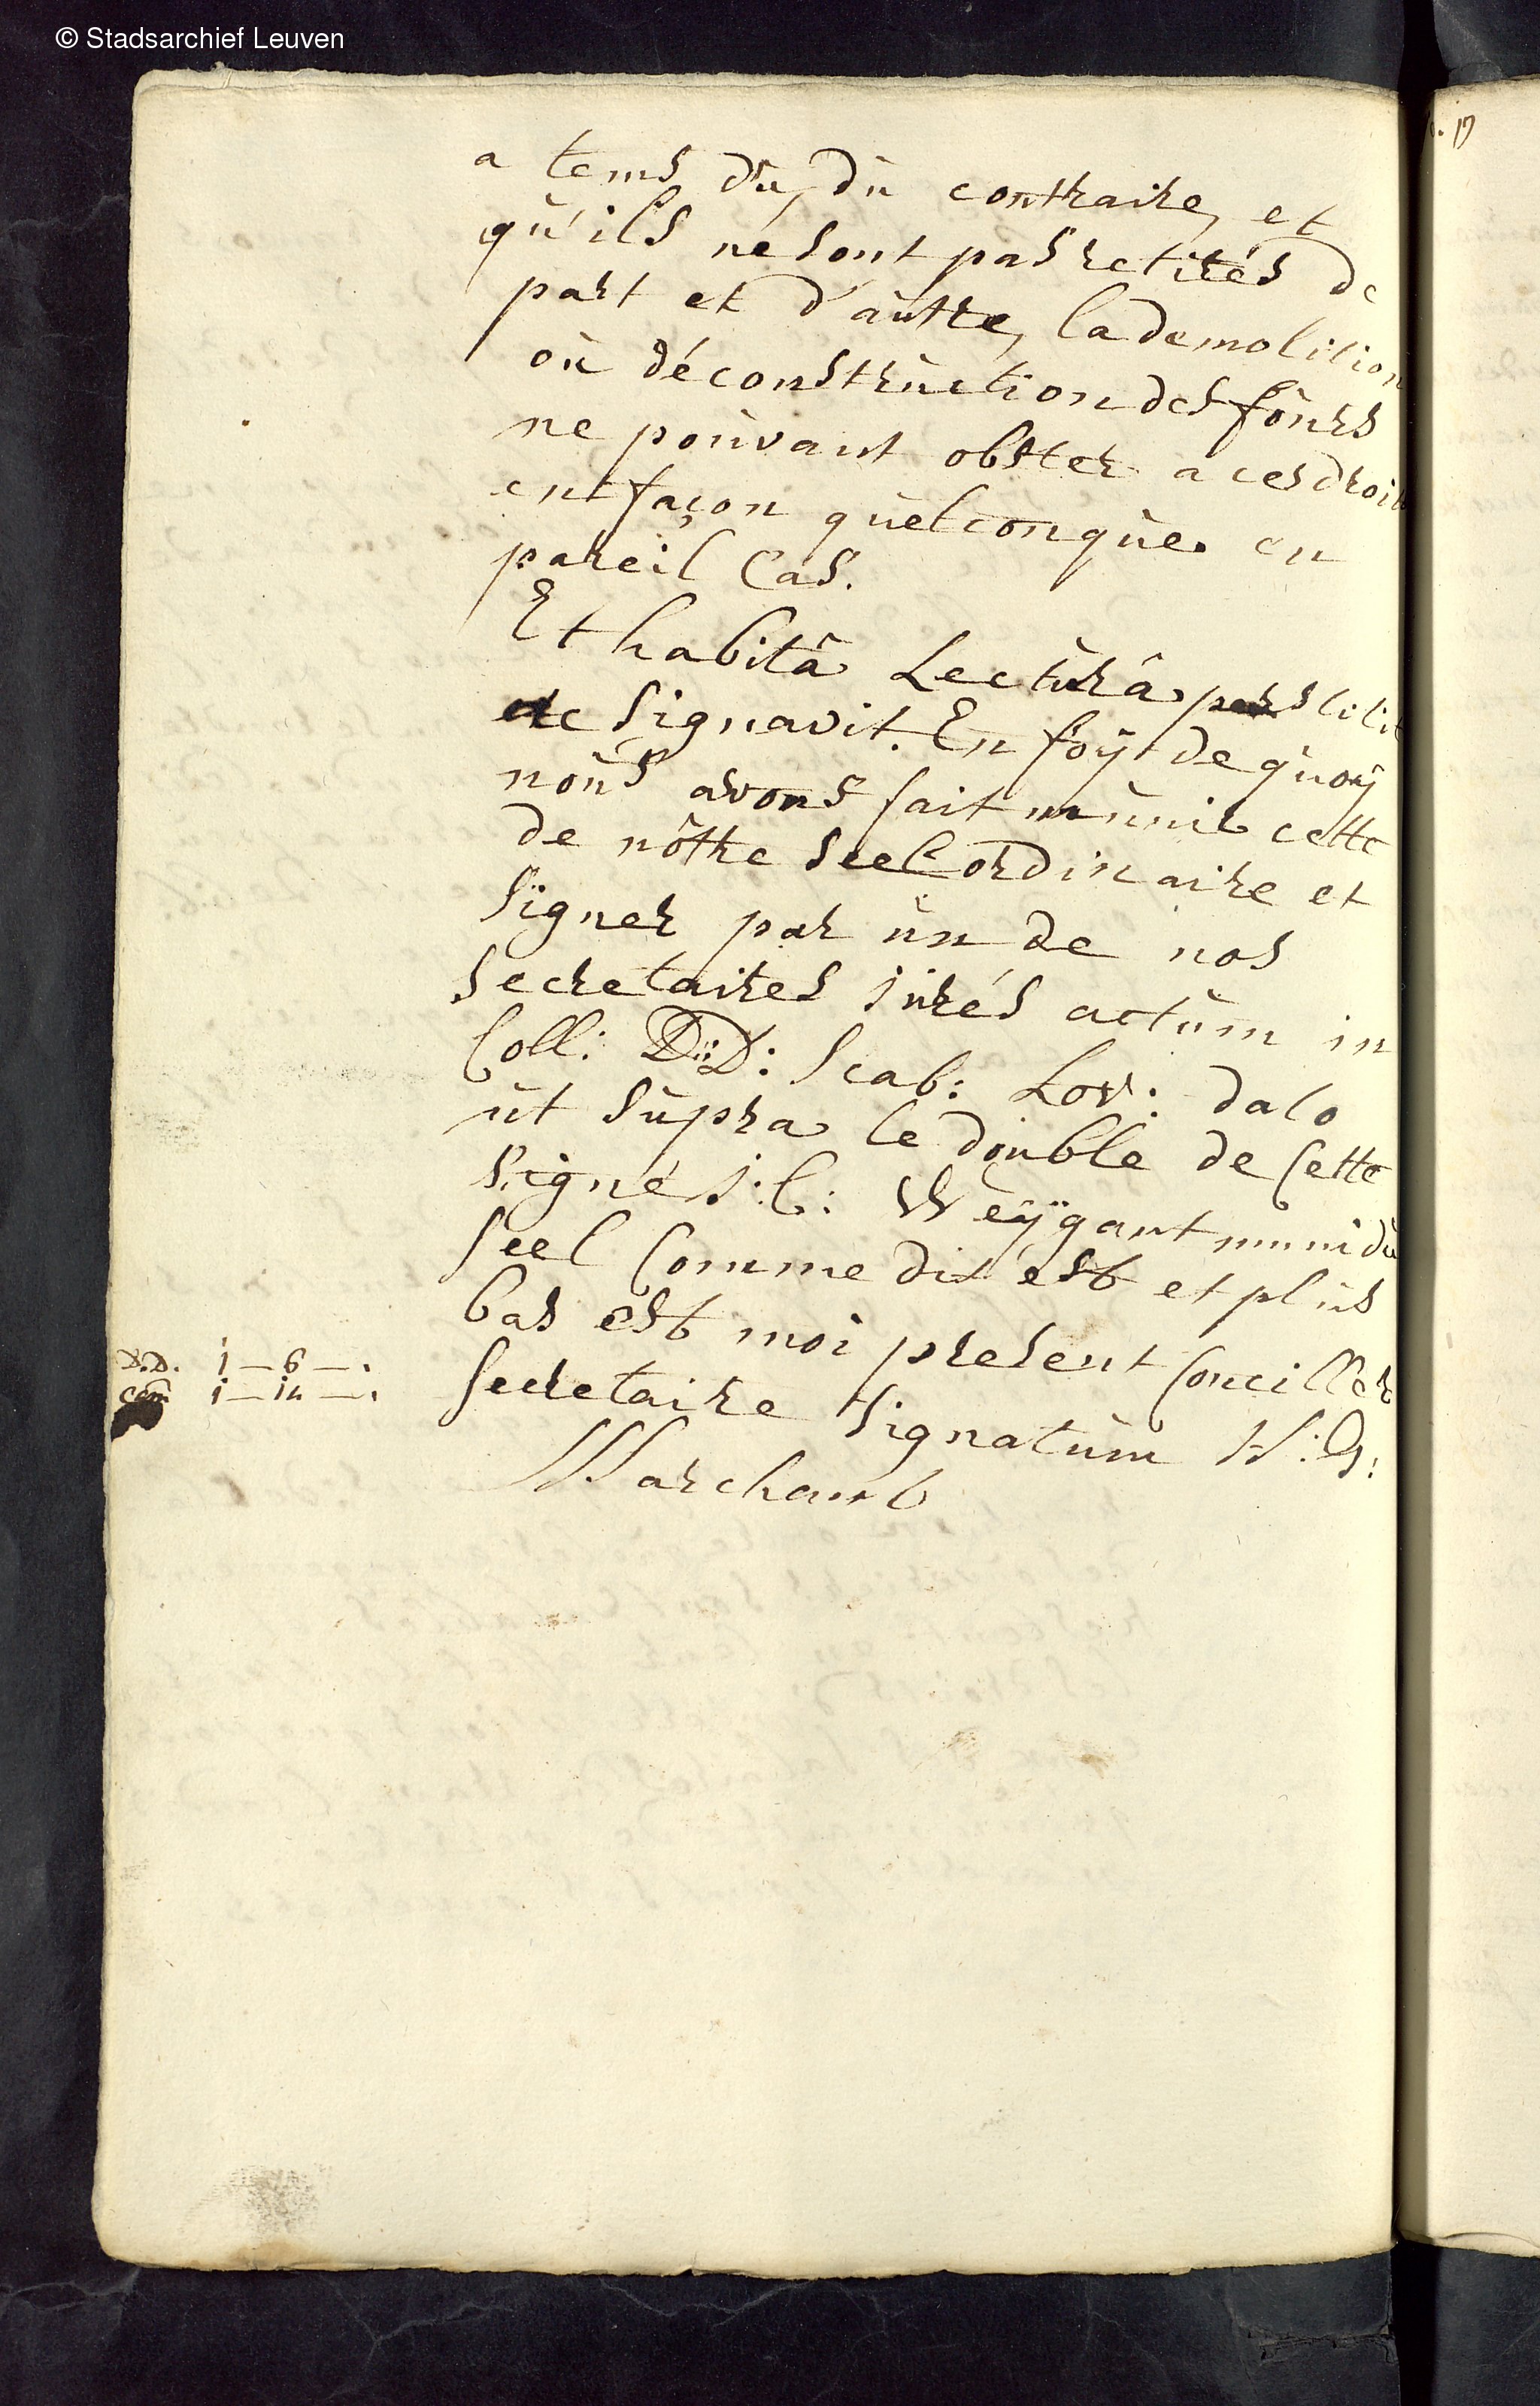 © Stadsarchief Leuven
a tems dû, dù contraire, et
qu'ils né sont pas retirés de
part et d'autre, la demolition
où déconstrùction des foùrs
ne poùvant obster a ces droits
en façon quelconqùe en
pareil Cas.
Et habitâ Lectùrâ perstitit
ac signavit. En foÿ de quoÿ
noùs avons fait mùnir cette
de nôtre seel ordinaire et
signer par ùn de nos
secretaires jùrés actùm in
Coll: DD: Scab: Lov: dato
ùt sùpra le doùble de Cette
signé J:C: Weÿgant muni dù
seel Comme dit est et plùs
bas est moi present Conciller
D.D. 1 — 6 — .
1 — 14 — .
secretaire signatùm H: G:
Marchant